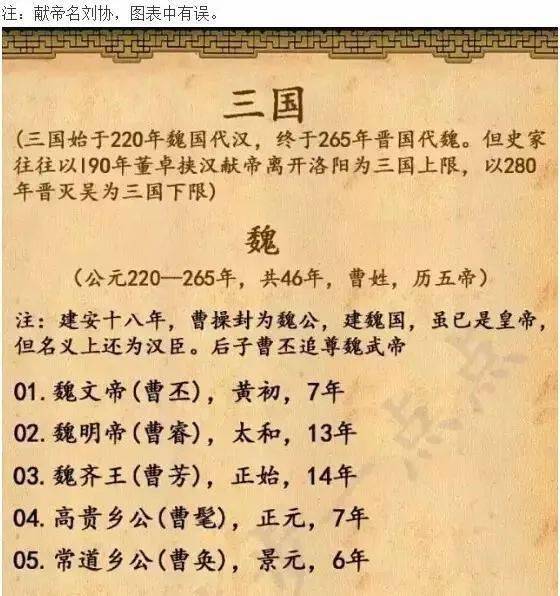 注：献帝名刘协，图表中有误。
三国
(三国始于220年魏国代汉，终于265年晋国代魏。但史家
往往以190年董卓挟汉献帝离开洛阳为三国上限，以280
年晋灭吴为三国下限)
魏
（公元220—265年，共46年，曹姓，历五帝）
注：建安十八年，曹操封为魏公，建魏国，虽已是皇帝，
但名义上还为汉臣。后子曹丕追尊魏武帝
01.魏文帝(曹丕)，黄初，7年
02.魏明帝(曹睿)，太和，13年
03.魏齐王(曹芳)，正始，14年
04.高贵乡公(曹髦)，正元，7年
05.常道乡公(曹奂)，景元，6年